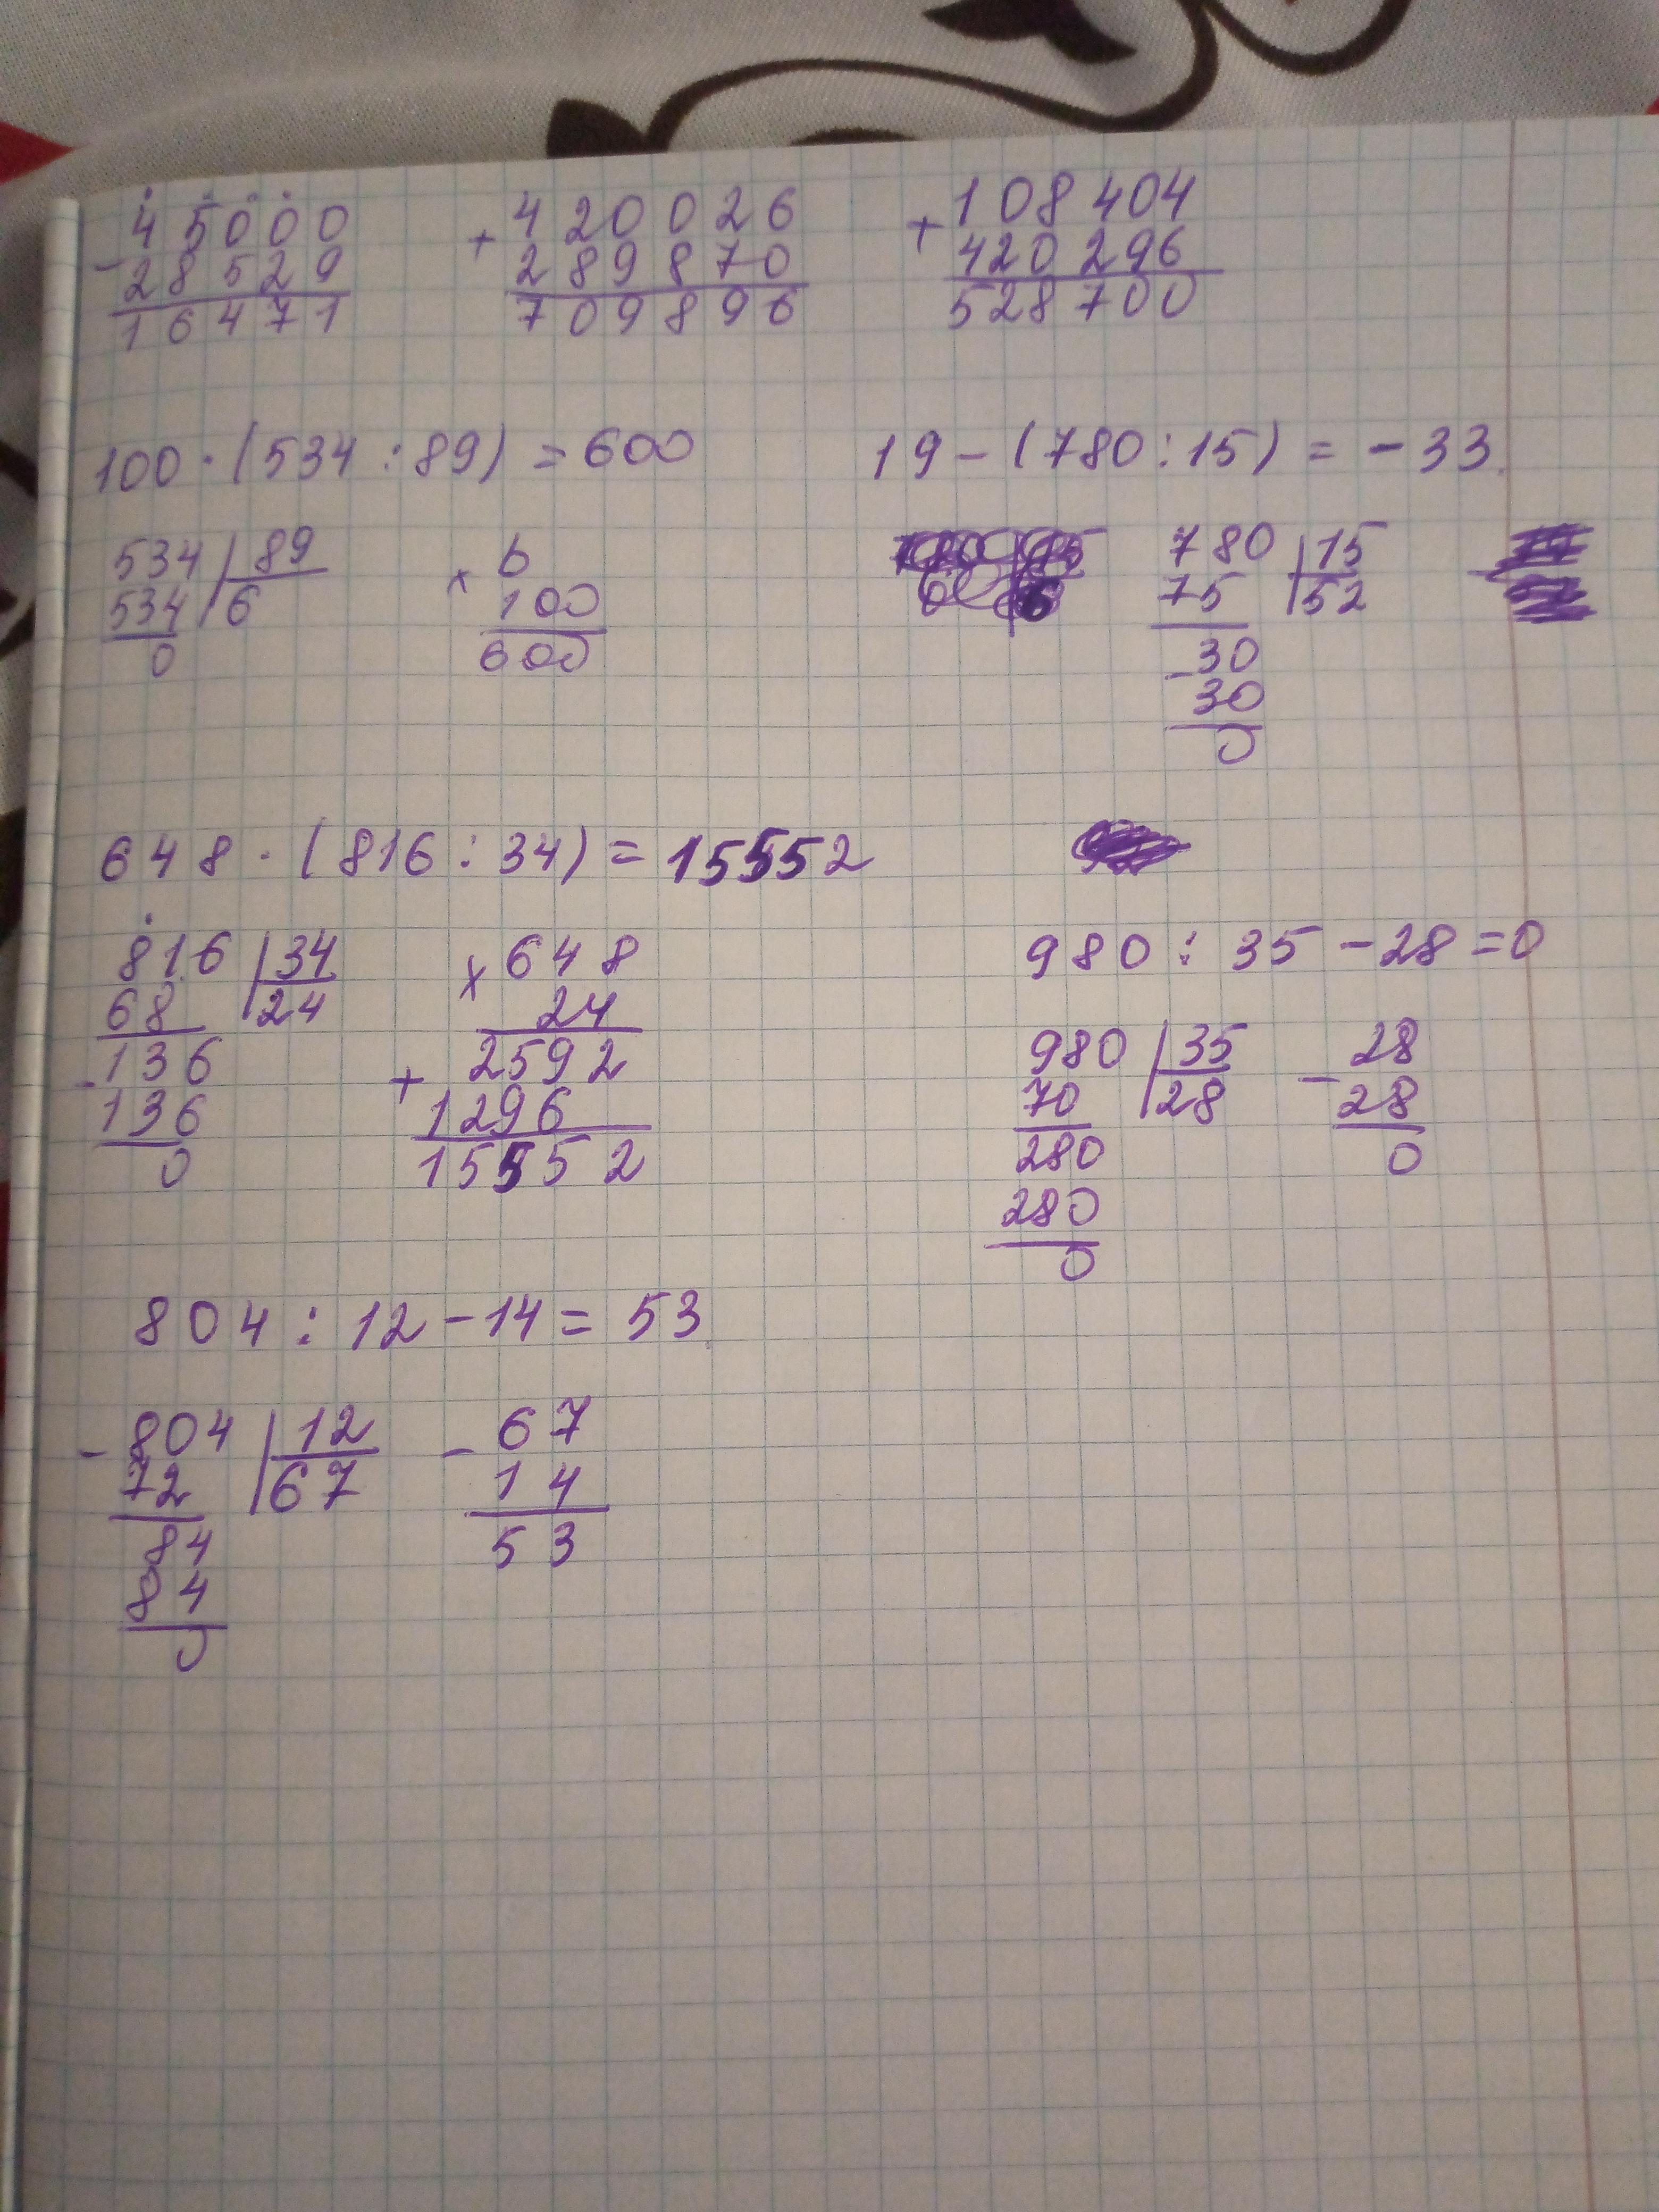 45000 + 420026 + 108404
- 28529 289870 420296
16471 709896 528700
100 · (534 : 89) = 600 19 - (780 : 15) = - 33.
534 | 89 × 6 780 | 15
534 | 6 100 75 | 52
0 600 - 30
30
0
648 · (816 : 34) = 15552
980 : 35 - 28 = 0
816 | 34 × 648
68 | 24 24 980 | 35 - 28
- 136 2592 70 | 28 28
136 + 1296 280 0
0 15552 280
0
804 : 12 - 14 = 53.
- 804 | 12 - 67
72 | 67 14
84 53
84
0